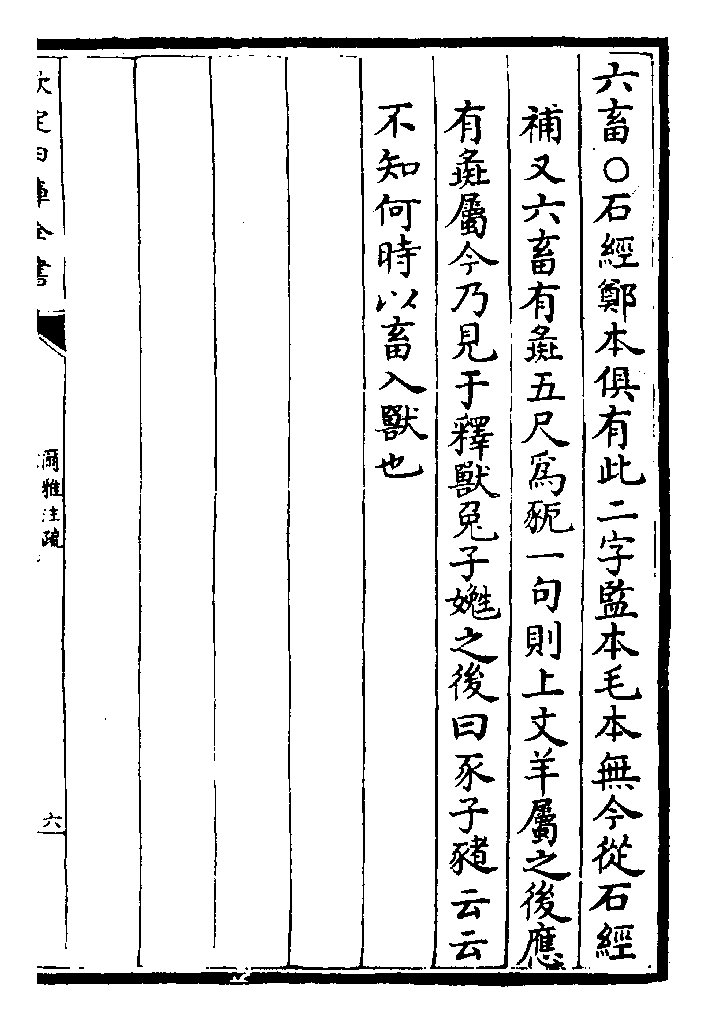 六畜○石經鄭本俱有此二字監本毛本無今從石經
補又六畜有彘五尺爲豟一句則上文羊屬之後應
有彘屬今乃見于釋獸兔子嬎之後曰豕子豬云云
不知何時以畜入獸也
欽定四庫全書
爾雅注疏
六